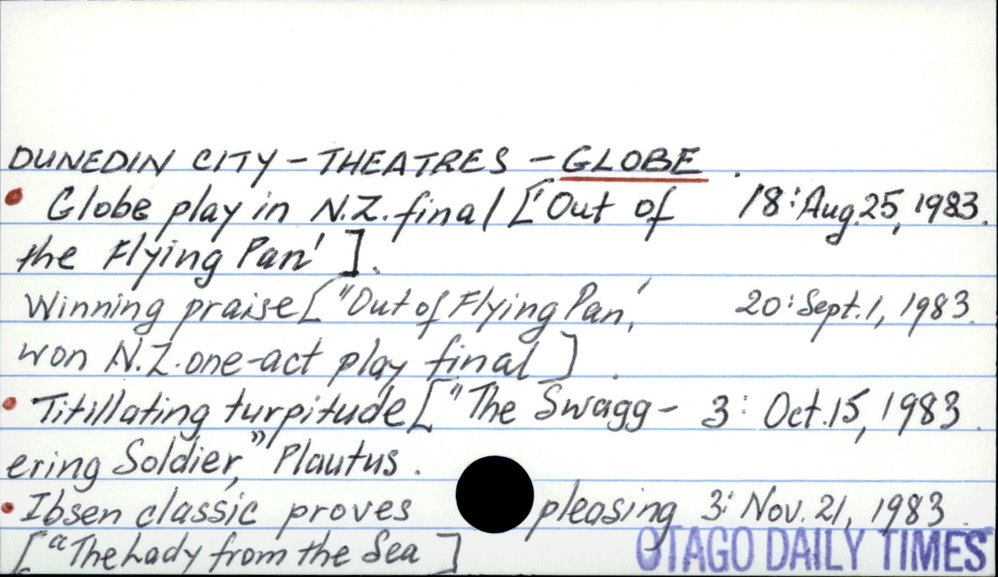 DUNEDIN CITY - THEATRES - GLOBE.
• Globe play in N.Z. final ['Out of 18: Aug. 25, 1983.
the Flying Pan'].
Winning praise ["Out of Flying Pan,' 20: Sept. 1, 1983.
won N.Z. one-act play final].
• Titillating turpitude ["The Swagg- 3: Oct. 15, 1983.
ering Soldier," Plautus.
• Ibsen classic proves pleasing 3: Nov. 21, 1983.
["The Lady from the Sea]
OTAGO DAILY TIMES